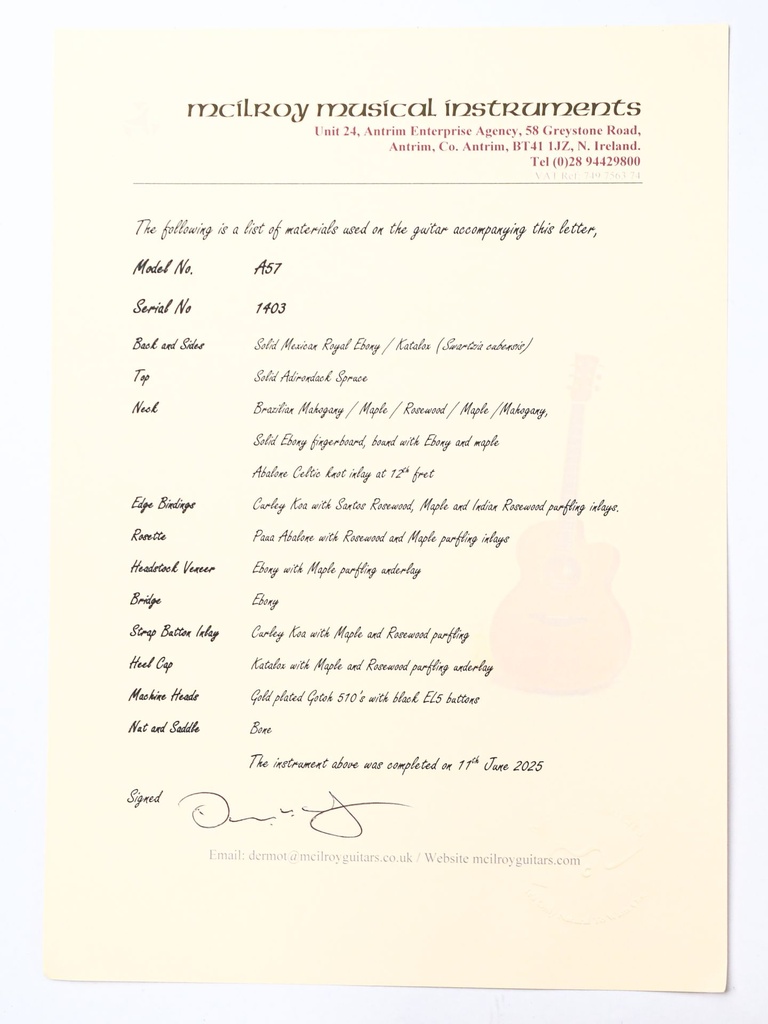 mcilroy musical instruments
Unit 24, Antrim Enterprise Agency, 58 Greystone Road,
Antrim, Co. Antrim, BT41 1JZ, N. Ireland.
Tel (0)28 94429800
VAT Ref: 749 7563 74
The following is a list of materials used on the guitar accompanying this letter,
Model No. A57
Serial No 1403
Back and Sides Solid Mexican Royal Ebony / Katalox (Swartzia cubensis)
Top Solid Adirondack Spruce
Neck Brazilian Mahogany / Maple / Rosewood / Maple /Mahogany,
Solid Ebony fingerboard, bound with Ebony and maple
Abalone Celtic knot inlay at 12th fret
Edge Bindings Curley Koa with Santos Rosewood, Maple and Indian Rosewood purfling inlays.
Rosette Paua Abalone with Rosewood and Maple purfling inlays
Headstock Veneer Ebony with Maple purfling underlay
Bridge Ebony
Strap Button Inlay Curley Koa with Maple and Rosewood purfling
Heel Cap Katalox with Maple and Rosewood purfling underlay
Machine Heads Gold plated Gotoh 510's with black EL5 buttons
Nut and Saddle Bone
The instrument above was completed on 11th June 2025
Signed
Email: dermot@mcilroyguitars.co.uk / Website mcilroyguitars.com